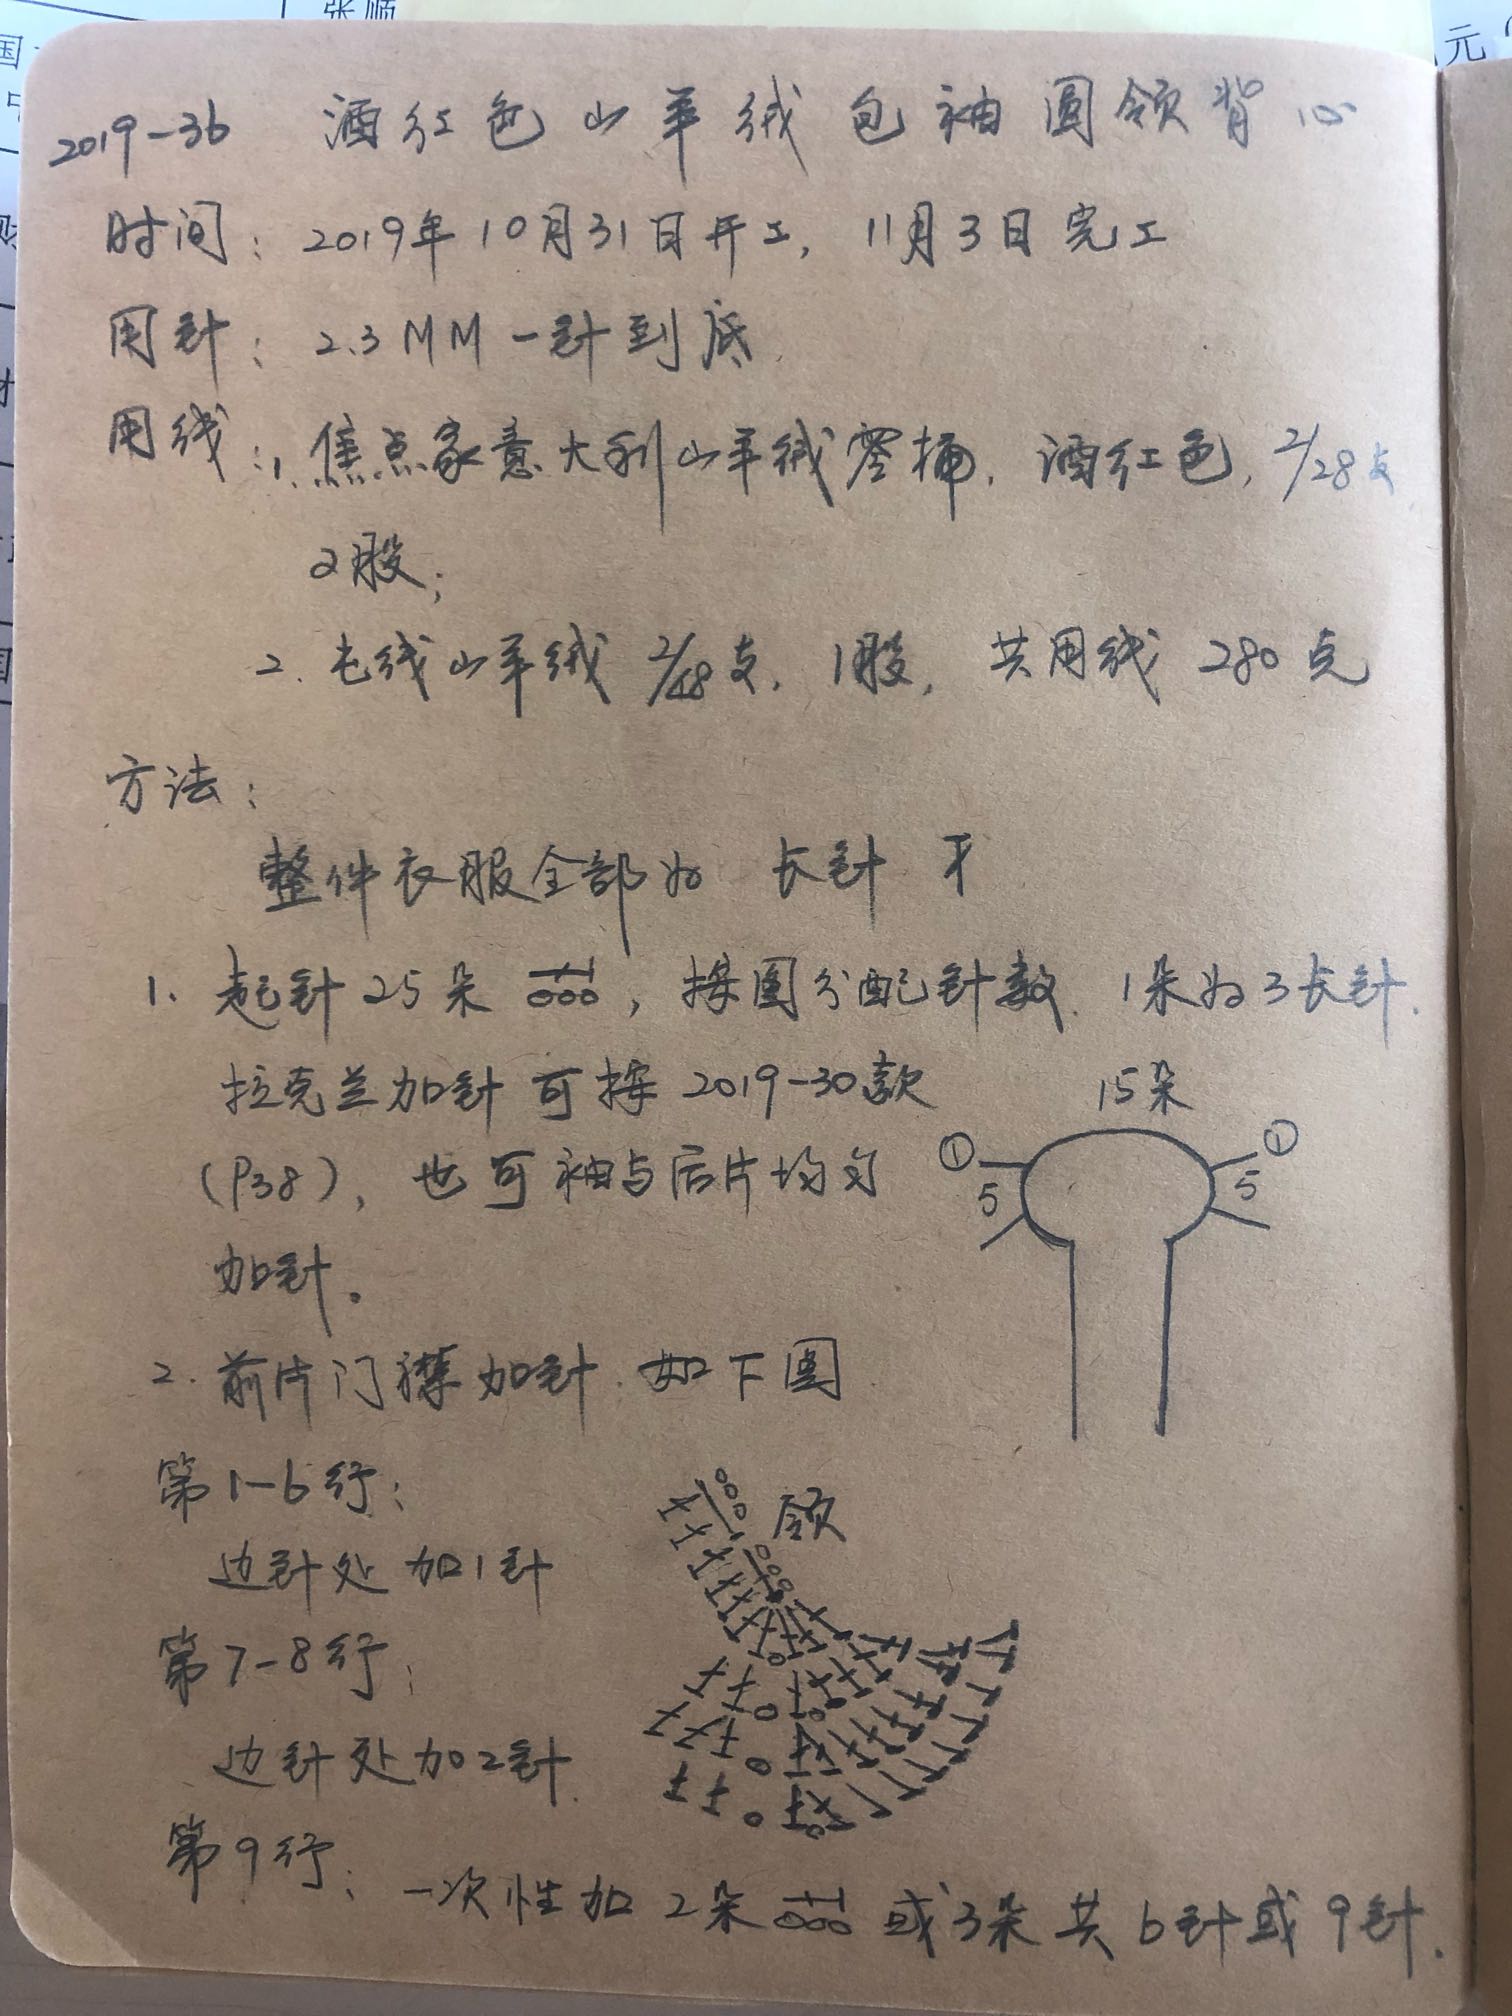 张顺
国
元
2019-36 酒红色山羊绒包袖圆领背心
时间：2019年10月31日开工，11月3日完工
用针：2.3MM一针到底
用线：1.焦点家意大利山羊绒零桶，酒红色，2/28支
2股；
2.毛线山羊绒2/48支，1股，共用线280克
方法：
整件衣服全部为 长针
1.起针25朵，按图分配针数，1朵为3长针.
拉克兰加针可按2019-30款
(P38)，也可袖与后片均匀
加针。
15朵
① ①
5 5
2.前片门襟加针，如下图
第1-6行：
边针处加1针
领
第7-8行：
边针处加2针
第9行：一次性加2朵 或3朵共6针或9针.